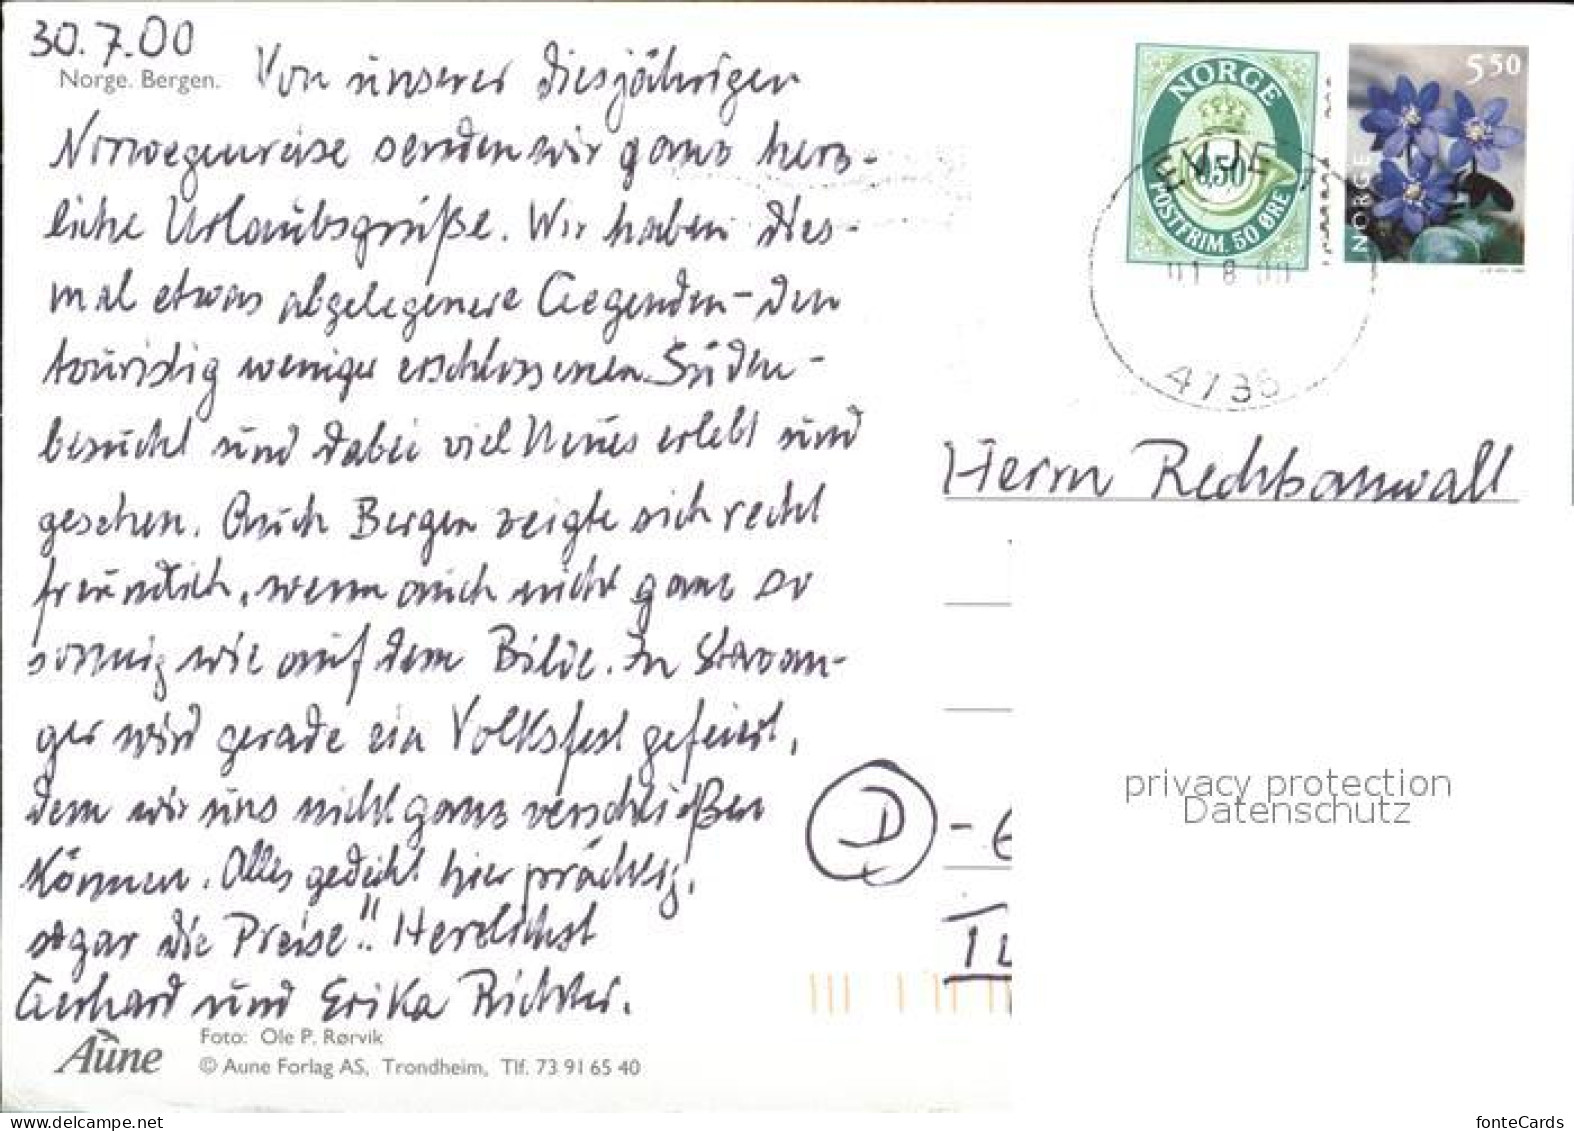 30.7.00
Norge. Bergen.
Von unserer diesjährigen
Norwegenreise senden wir ganz herz-
liche Urlaubsgrüße. Wir haben dies-
mal etwas abgelegenere Gegenden - den
touristig weniger erschlossenen Süden -
besucht und dabei viel Neues erlebt und
gesehen. Auch Bergen zeigte sich recht
freundlich, wenn auch nicht ganz so
sonnig wie auf dem Bilde. In Stavan-
ger wird gerade ein Volksfest gefeiert,
dem wir uns nicht ganz verschließen
können. Alles gedeiht hier prächtig,
sogar die Preise!! Herzlichst
Gerhard und Erika Richter.
Aune
Foto: Ole P. Rørvik
© Aune Forlag AS, Trondheim, Tlf. 73 91 65 40
NORGE
POSTFRIM. 50 ØRE
5 50
NORGE
01 8 00
4735
Herrn Rechtsanwalt
D - 
privacy protection
Datenschutz
www.delcampe.net
fonteCards